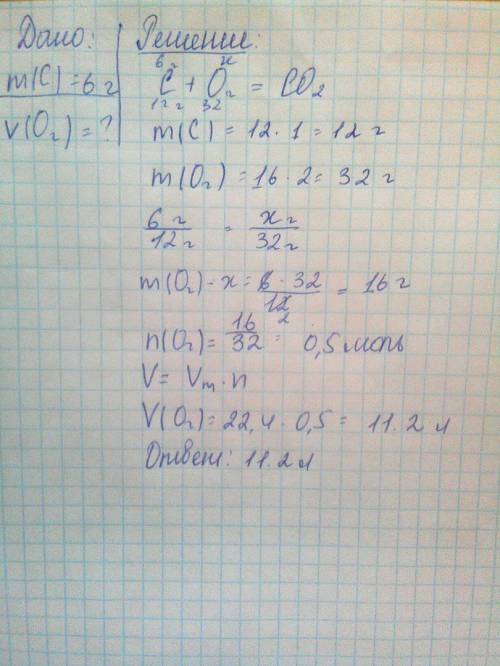 Дано:
m(C) = 6 г
V(O₂) = ?
Решение:
6 г x
C + O₂ = CO₂
12 г 32
m(C) = 12 · 1 = 12 г
m(O₂) = 16 · 2 = 32 г
6 г / 12 г = x г / 32 г
m(O₂) - x = 6 · 32 / 12 = 16 г
2
n(O₂) = 16 / 32 = 0,5 моль
V = Vm · n
V(O₂) = 22,4 · 0,5 = 11.2 л
Ответ: 11.2 л